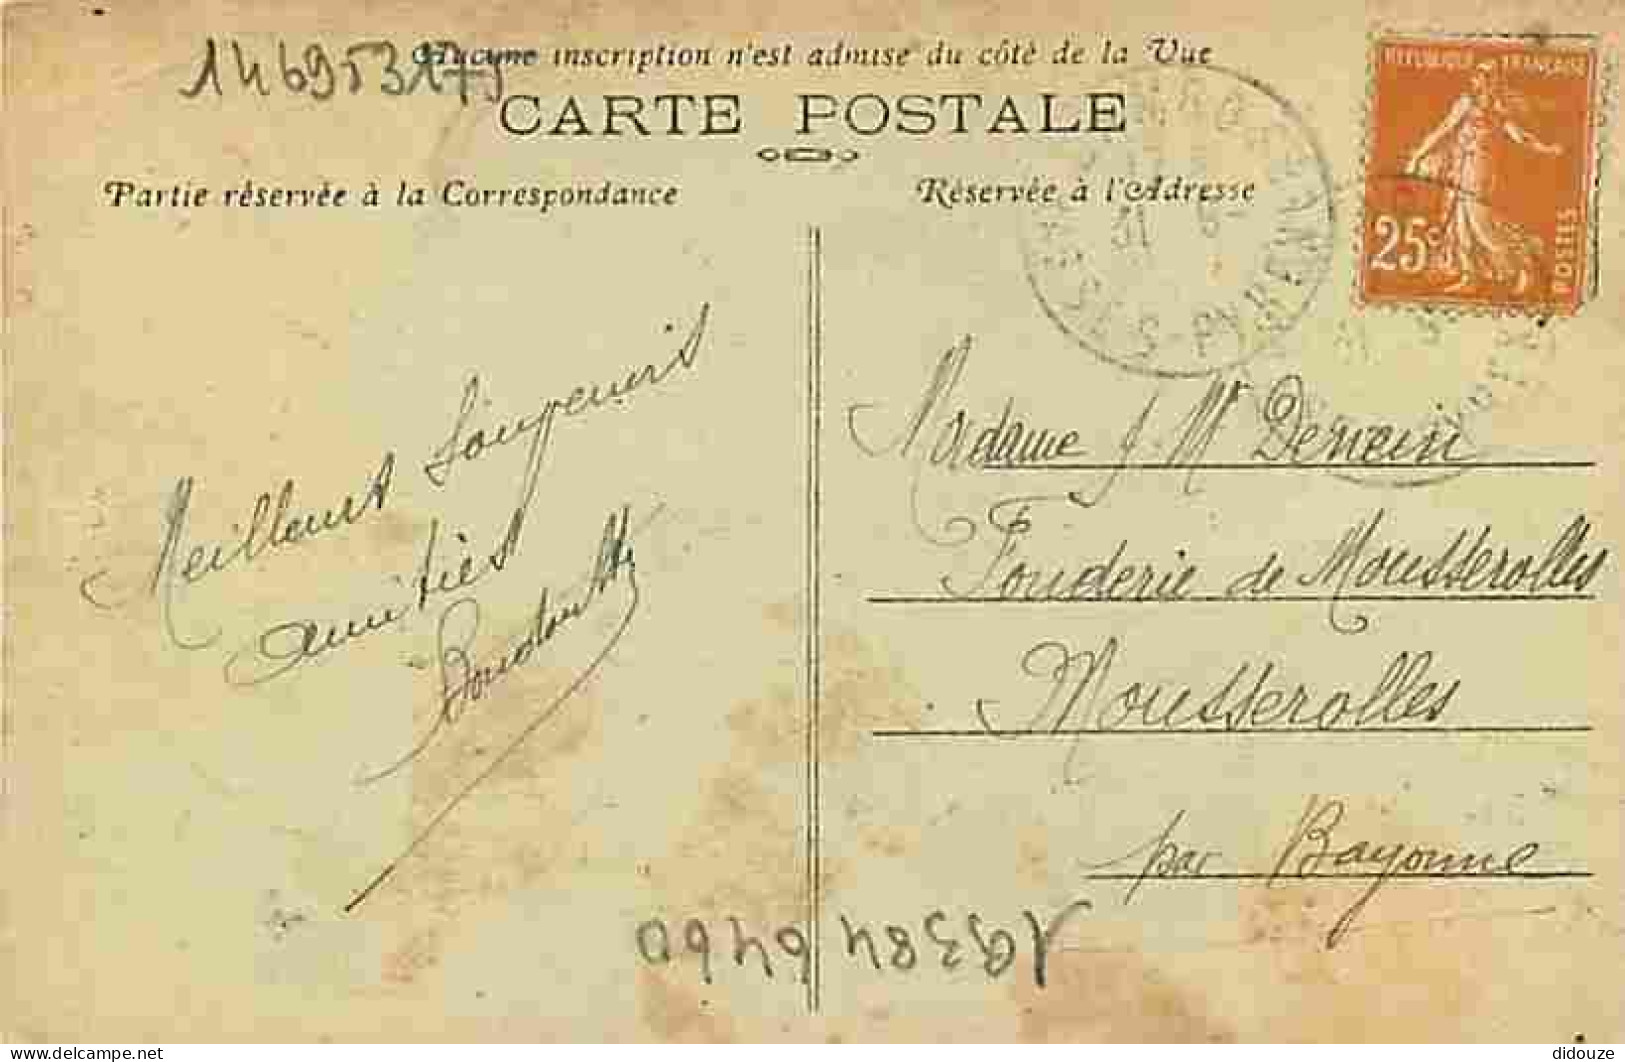 146953179
Aucune inscription n'est admise du côté de la Vue
CARTE POSTALE
Partie réservée à la Correspondance
Réservée à l'Adresse
REPUBLIQUE FRANÇAISE
25c
POSTES
Sˢ-PYRENEES
Meilleurs Souvenirs
amitiés
Madame J. Mᵗ
Fonderie de Mousserolles
Mousserolles
par Bayonne
didouze